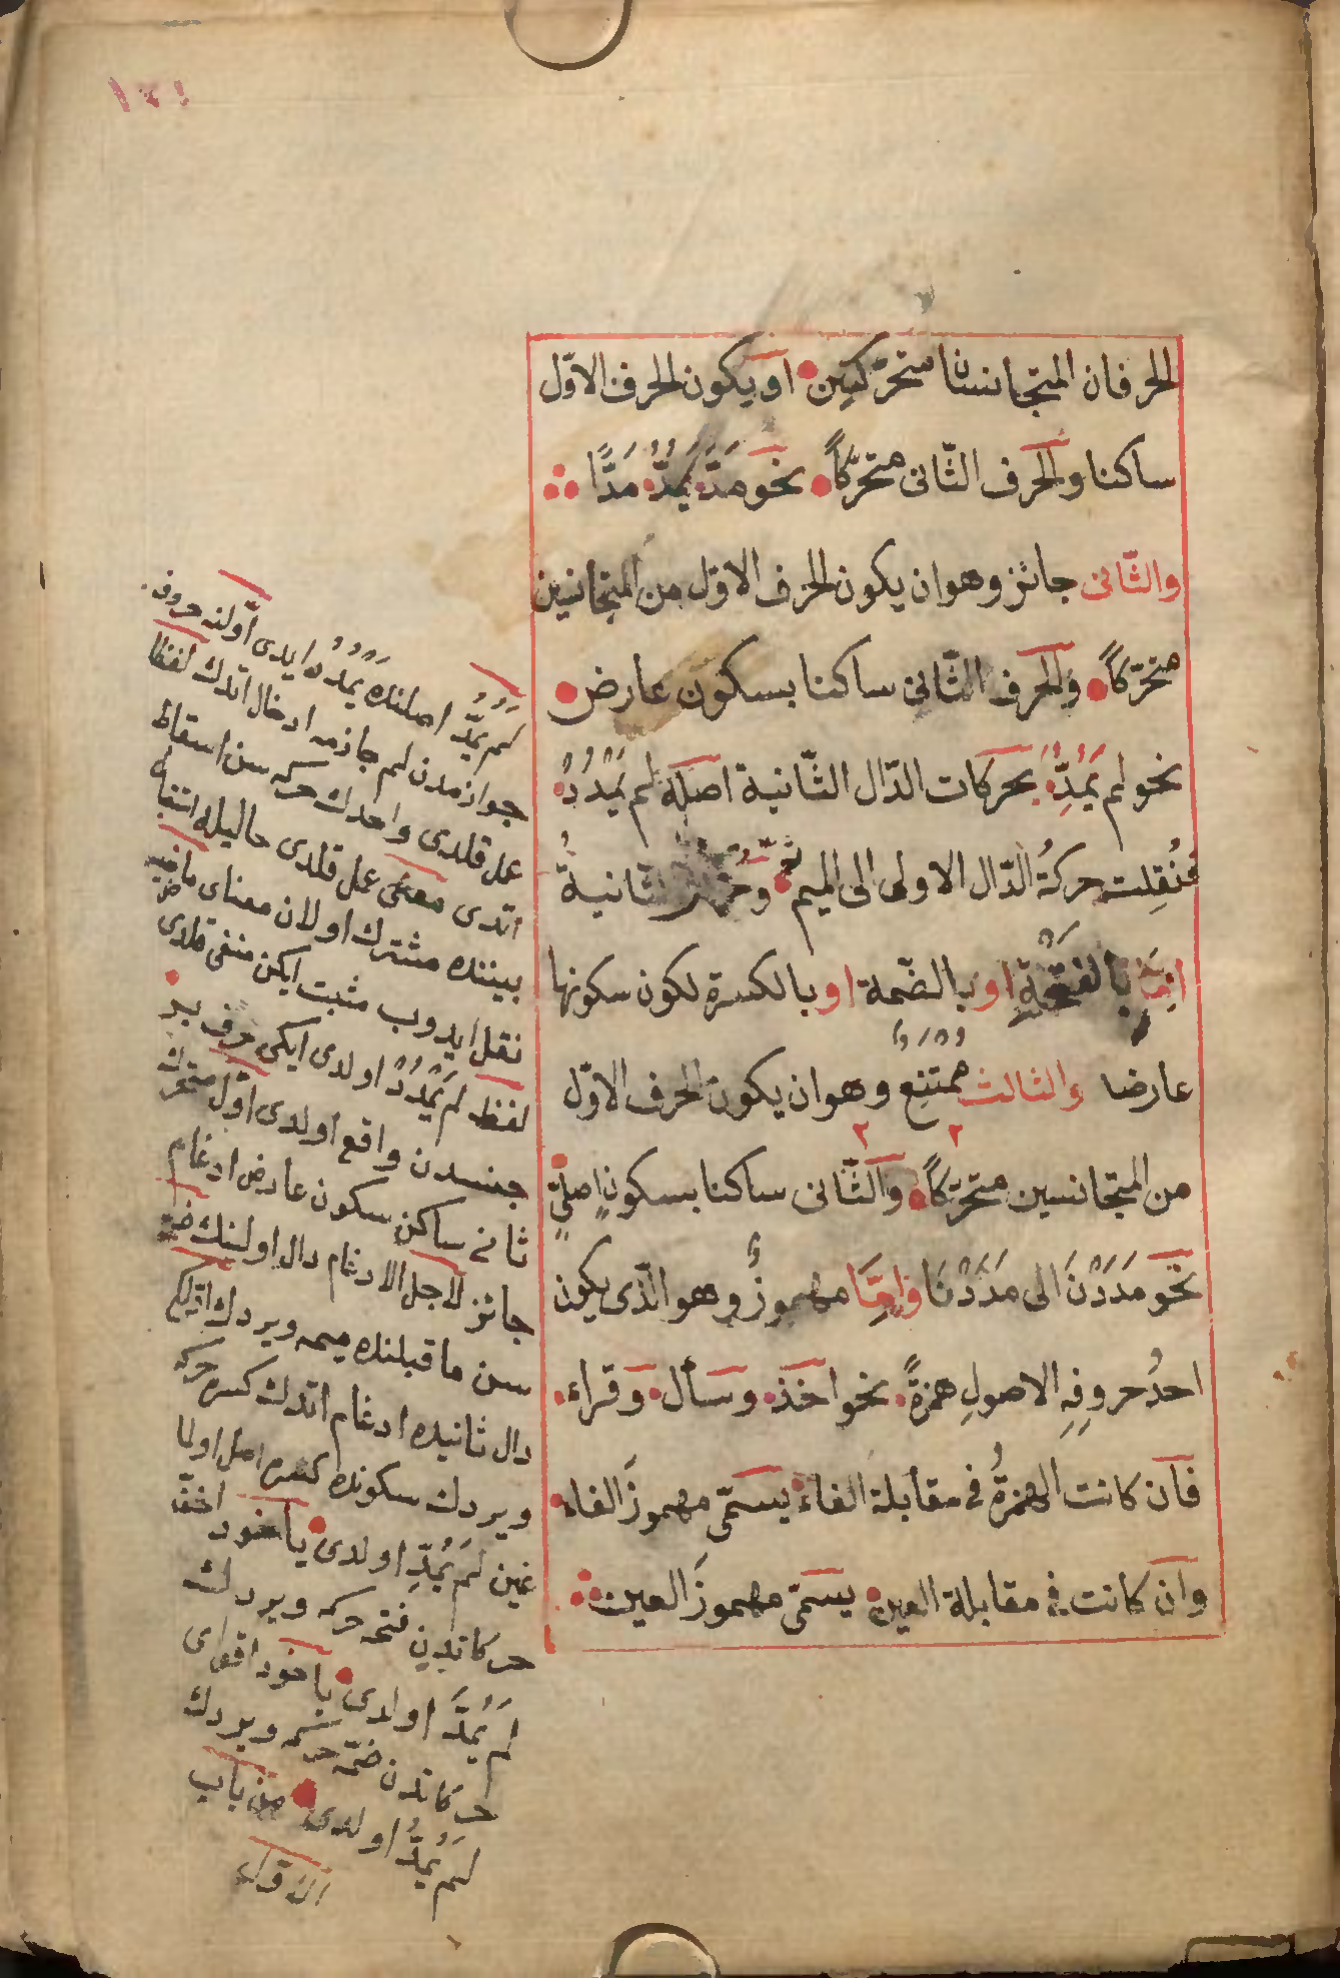 الحرفان المتجانسان متحرّكين او يكون الحرف الاوّل
ساكنا والحرف الثّانى متحرّكاً نحو مَدَّ يَمُدُّ مَدًّا
والثّانى جائز وهو ان يكون الحرف الاوّل من المتجانسين
متحرّكاً والحرف الثّانى ساكنا بسكون عارض
نحو لم يَمُدِّ بحركات الدّال الثّانية اصله لم يَمْدُدْ
فنُقِلت حركةُ الدّال الاولى الى الميم ثم الثانيةُ
امّا بالفتحةِ او بالضّمة او بالكسرة لكون سكونها
عارضا والثالث ممتنِع وهو ان يكون الحرف الاوّل
من المتجانسين متحرّكاً والثّانى ساكنا بسكونٍ اصلىٍّ
نحو مَدَدْنَ الى مَدَدْنَا وامّا مهموزٌ وهو الّذى يكون
احدُ حروفِهِ الاصولِ همزةً نحو اخذ وسأل وقراء
فان كانت الهمزةُ فى مقابلة الفاء يسمّى مهموزَ الفاء
وان كانت فى مقابلة العين يسمّى مهموزَ العين
لَمْ يَمُدَّ اصلنده يَمْدُدُ ايدى اوّلنه حروف
جوازمدن لم جازمه ادخال اتدك لفظا
عمل قلدى واحدك حركه سن اسقاط
اتدى معنى عمل قلدى حاليله استقبال
بيننده مشترك اولان معناى ماضيه
نقل ايدوب مثبت ايكن منفى قلدى
لفظ لَمْ يَمْدُدْ اولدى ايكى حرف بر
جنسدن واقع اولدى اوّل متحرك
ثانى ساكن سكون عارض ادغام
جائز لاجل الادغام دال اولنك
سن ماقبلنده ميمه ويردك
دال ثانيده ادغام اتدك كسر حركه
ويردك سكونده كسره اصل اولما
غين لَمْ يَمُدِّ اولدى ياخود اخفّ
حركاتدن فتحه حركه ويردك
لَمْ يَمُدَّ اولدى ياخود اقواى
حركاتدن ضمّه حركه ويردك
لَمْ يَمُدُّ اولدى من باب
الاوّل